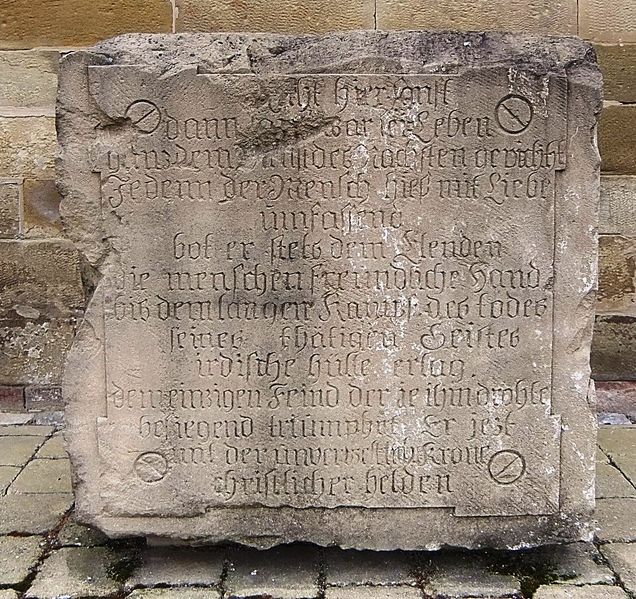 hier sanft
dann war sein Leben
ganz dem des Nächsten geweiht
Jedenn der Mensch hieß mit Liebe
umfassend
bot er stets dem Elenden
die menschenfreundliche Hand
bis dem langen Kampf des todes
seines thätigen Geistes
irdische hülle erlag
dem einzigen Feind der je ihm drohte
besiegend triumphirt Er jezt
mit der unverwetlich Krone
christlicher helden